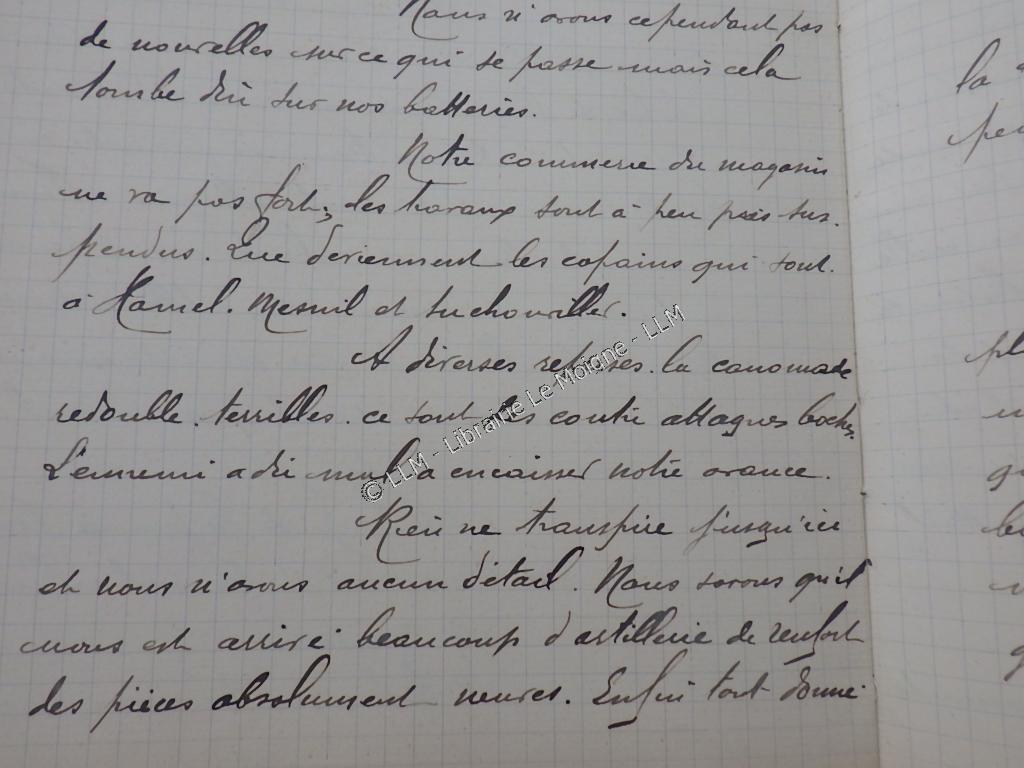 Nous n'avons cependant pas
de nouvelles sur ce qui se passe mais cela
tombe dru sur nos batteries.
Notre commerce du magasin
ne va pas fort, les travaux sont à peu près sus-
pendus. Que deviennent les copains qui sont
à Hamel. Mesnil et
A diverses reprises la canonnade
redouble. terribles. ce sont les contre attaques boches.
L'ennemi a du mal a encaisser notre avance.
Rien ne transpire jusqu'ici
et nous n'avons aucun détail. Nous savons qu'il
nous est arrivé beaucoup d'artillerie de renfort
des pièces absolument neuves. Enfin tout donne
la
© LLM - Librairie Le Moigne - LLM